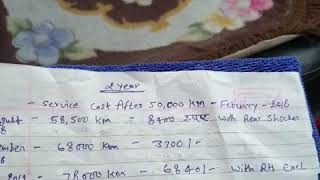 2 year
- Service Cost After 50,000 km - Febuary - 2018
- 58,500 km = 8400 रुपए With Rear Shocker
- 68000 km - 3700/-
- 78000 km - 6840/- With RH